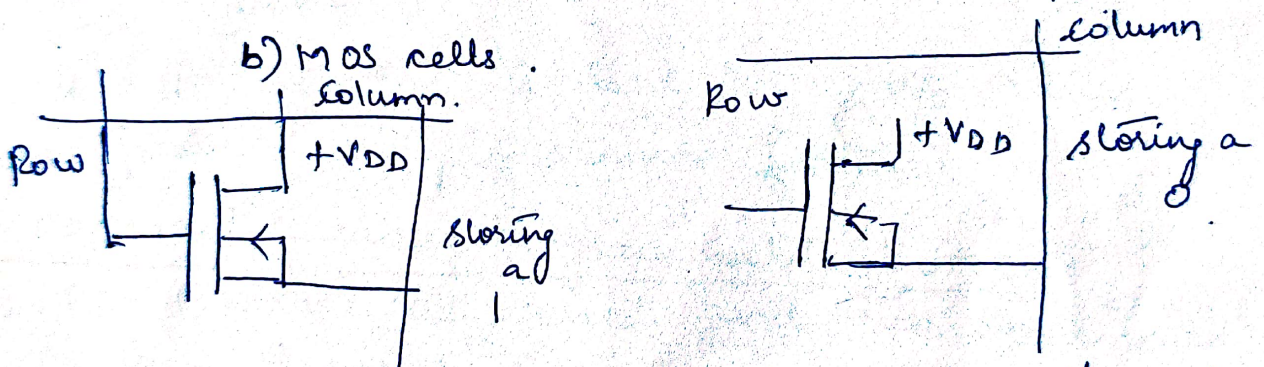 b) MOS cells .
column.
Row
+VDD
storing
a
1
column
Row
+VDD
storing a
0